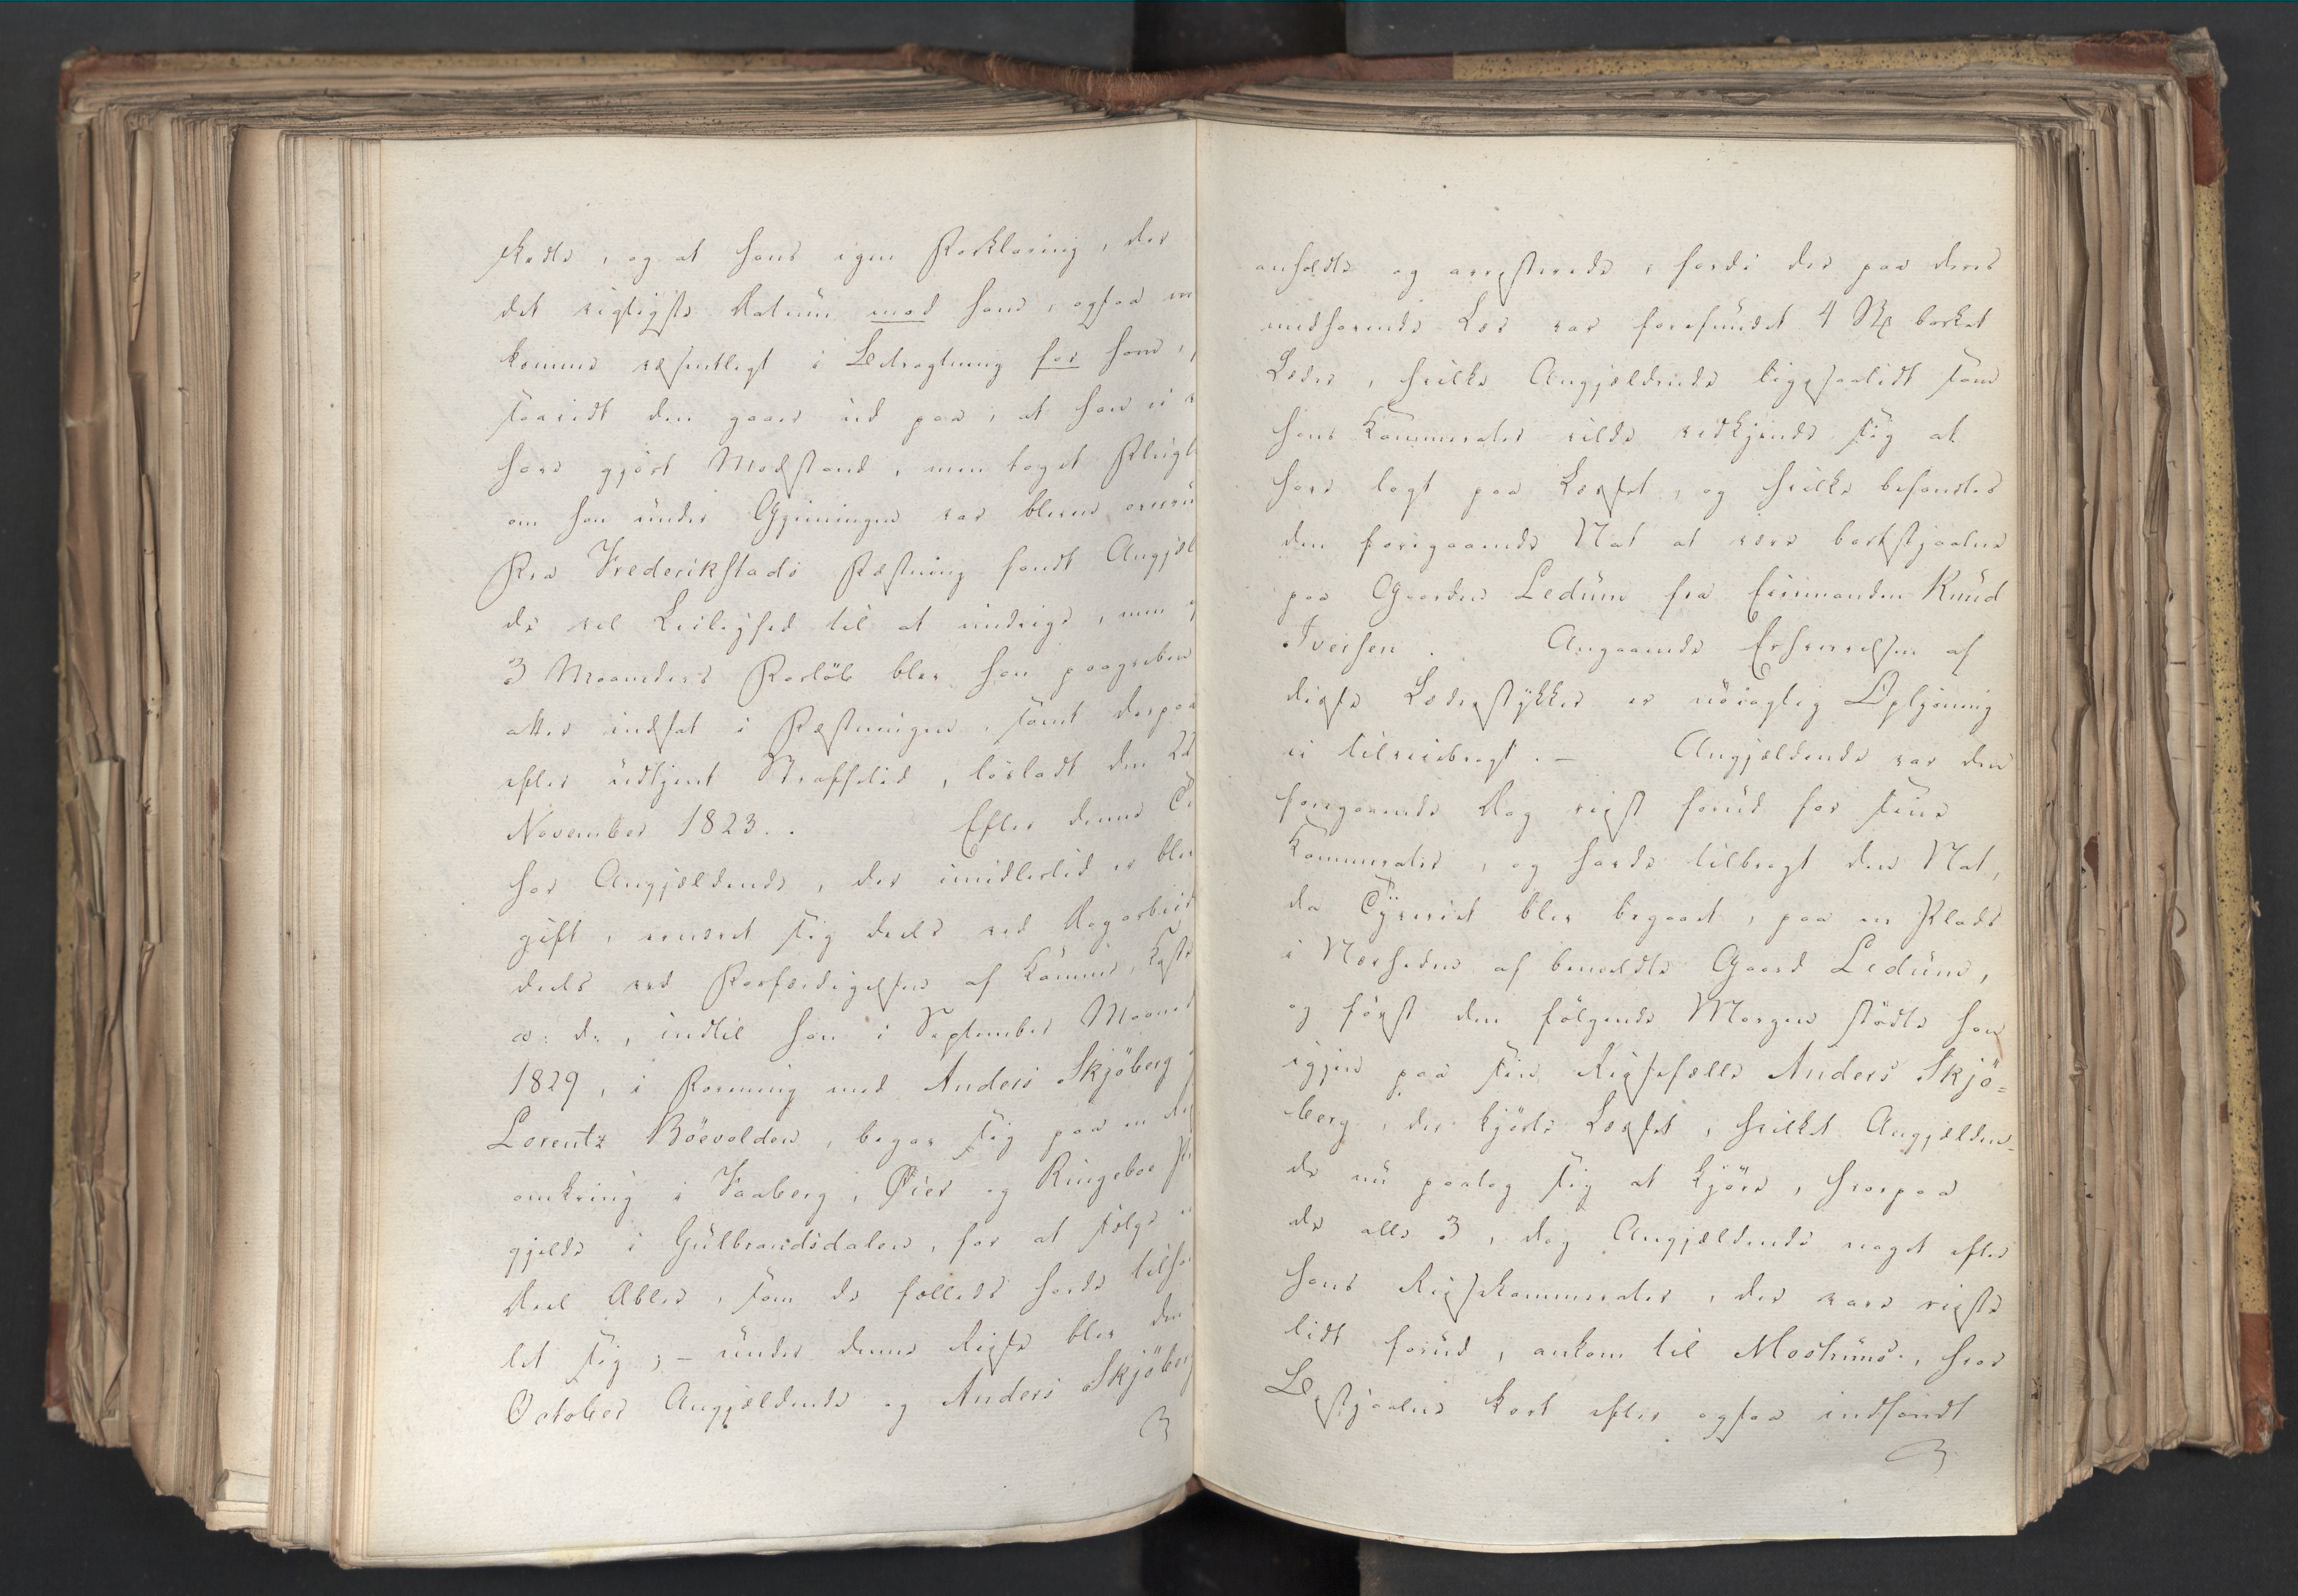 skedte, og at hans egen Forklaring, der
det rigtigste Datum mod ham, ogsaa m
komme væsentligt i Betragtning for ham,
saavidt den gaaer ud paa, at han ei v
have gjört Modstand, men taget Flugt
om han under Gjerningen var bleven overru
Fra Frederikstads Fæstning fandt Angjæl
de vel Leilighed til at undvige, men
3 Maaneders Forlöb blev han paagreben
atter indsat i Fæstningen, samt derpaa
efter udtjent Straffetid, lösladt den 22
November 1823. . Efter denne Ti
har Angjældende, der imidlertid er blev
gift, ernæret sig deels ved Dagarbeid
deels ved Forfærdigelsen af Kamme, Köste
o: d:, indtil han i September Maaned
1829, i Forening med Anders Skjöberg
Lorentz Böevolden, begav sig paa en
omkring i Faaberg, Öier og Ringeboe Pr
gjelde i Gulbrandsdalen, for at sælge
Deel Abler, som de fælleds havde tilha
let sig; - under denne Reise blev den
October Angjældende og Anders Skjöberg
anholdte og arresterede, fordi der paa deres
medhavende Læs var forefundet 4 barket
Læder, hvilke Angjældende ligesaalidt som
hans Kammerater vilde vedkjende sig at
have lagt paa Læsset, og hvilke befandtes
den foregaaende Nat at være bortstjaalne
paa Gaarden Ledum fra Eiermanden Knud
Iversen. Angaaende Erhvervelsen af
disse Læderstykker er nöiagtig Oplysning
ei tilveiebragt. - Angjældende var den
foregaaende Dag reist forud for sine
Kammerater, og havde tilbragt den Nat,
da Tyveriet blev begaaet, paa en Plads
i Nærheden af bemeldte Gaard Ledum,
og först den fölgende Morgen stödte han
igjen paa sin Reisefælle Anders Skjö=
berg, der kjörte Læsset, hvilket Angjælden-
de nu paatog sig at kjöre, hvorpaa
de alle 3, dog Angjældende noget efter
hans Reisekammerater, der vare reiste
lidt forud, ankom til Moshuus., hvor
Bestjaalne kort efter ogsaa indfandt